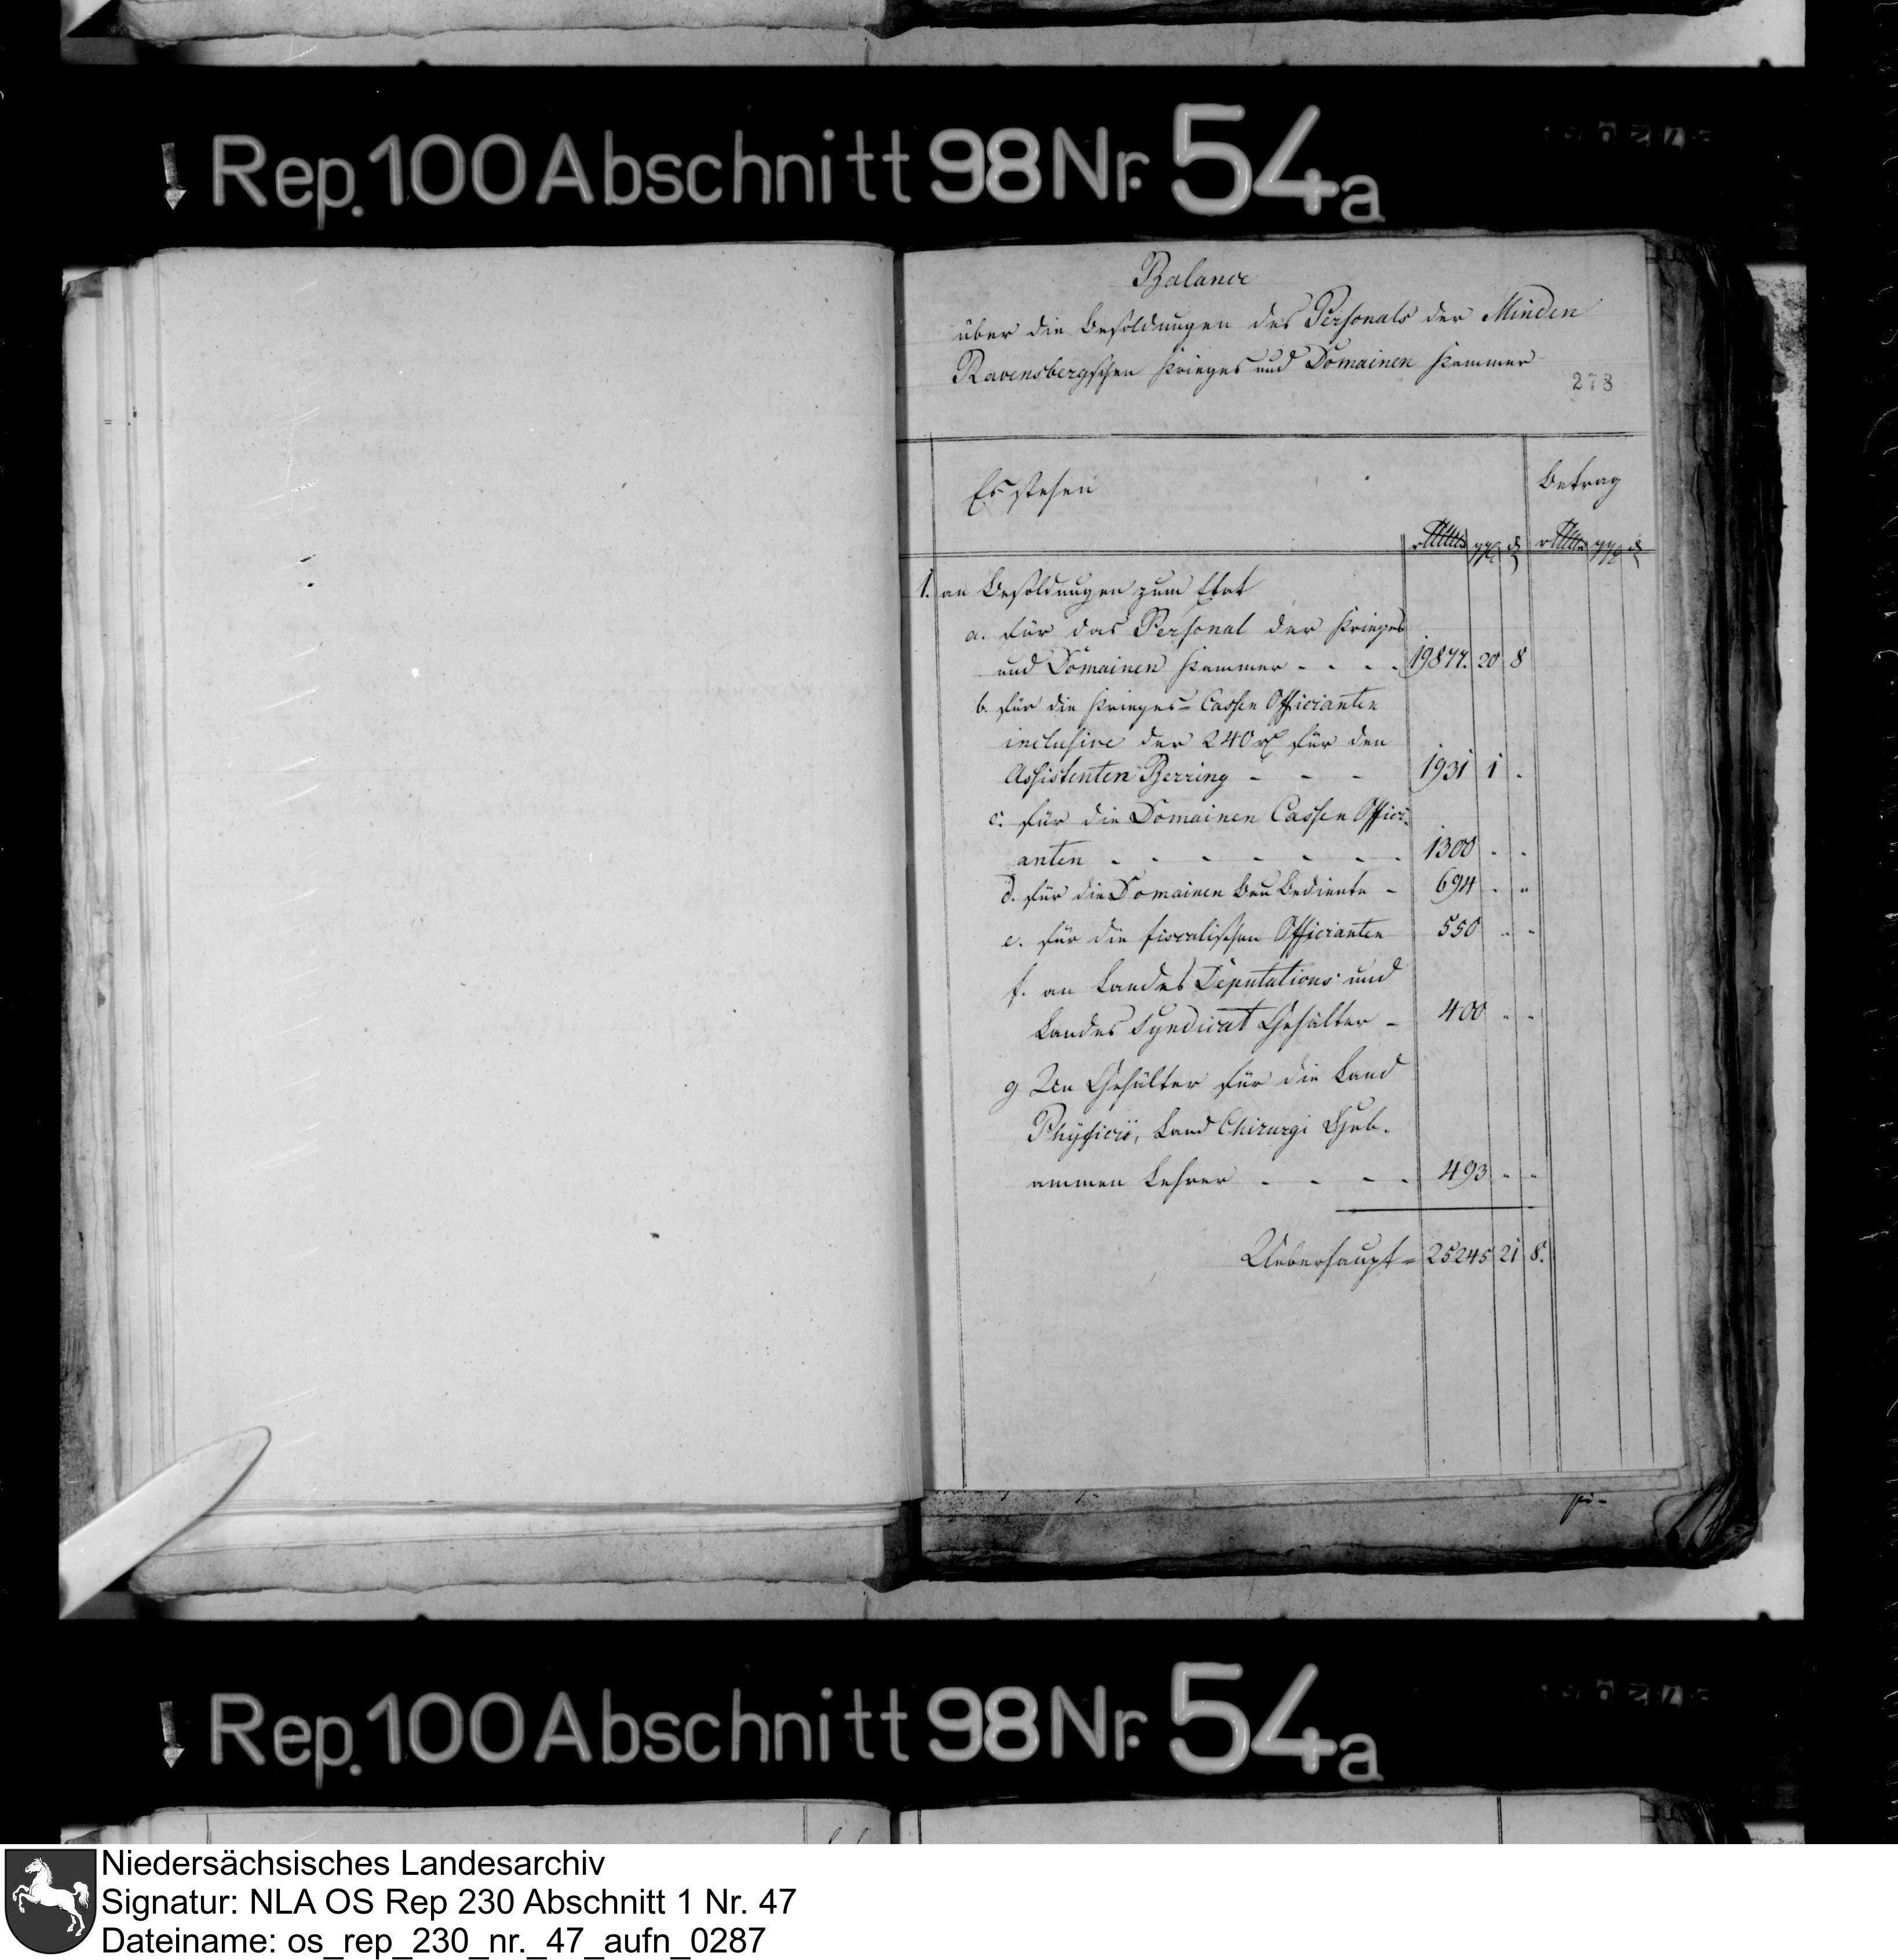 Rep. 100 Abschnitt 98 Nr. 54a
Balance
über die Besoldungen des Personals der Minden
Ravensbergschen Krieges und Domainen Kammer
278
Es stehen
Betrag
1. an Besoldungen zum Etat
a. für das Personal der Krieges
und Domainen Kammer - - - - 19877. 20 8
b. für die Krieges= Cassen Officianten
inclusive der 240 rt für den
Assistenten Berring - - - 1931 1 -
c. für die Domainen Cassen Offici-
anten - - - - - - - 1300 - -
d. für die Domainen Bau Bediente - 694 - -
e. für die fiscalischen Officianten 550 - -
f. an Landes Deputations und
Landes Syndicat Gehälter - 400 - -
g An Gehälter für die Land
Physicii, Land Chirurgi Heb-
ammen Lehrer - - - - 493 - -
Ueberhaupt = 25245 21 8.
Rep. 100 Abschnitt 98 Nr. 54a
Niedersächsisches Landesarchiv
Signatur: NLA OS Rep 230 Abschnitt 1 Nr. 47
Dateiname: os_rep_230_nr._47_aufn_0287